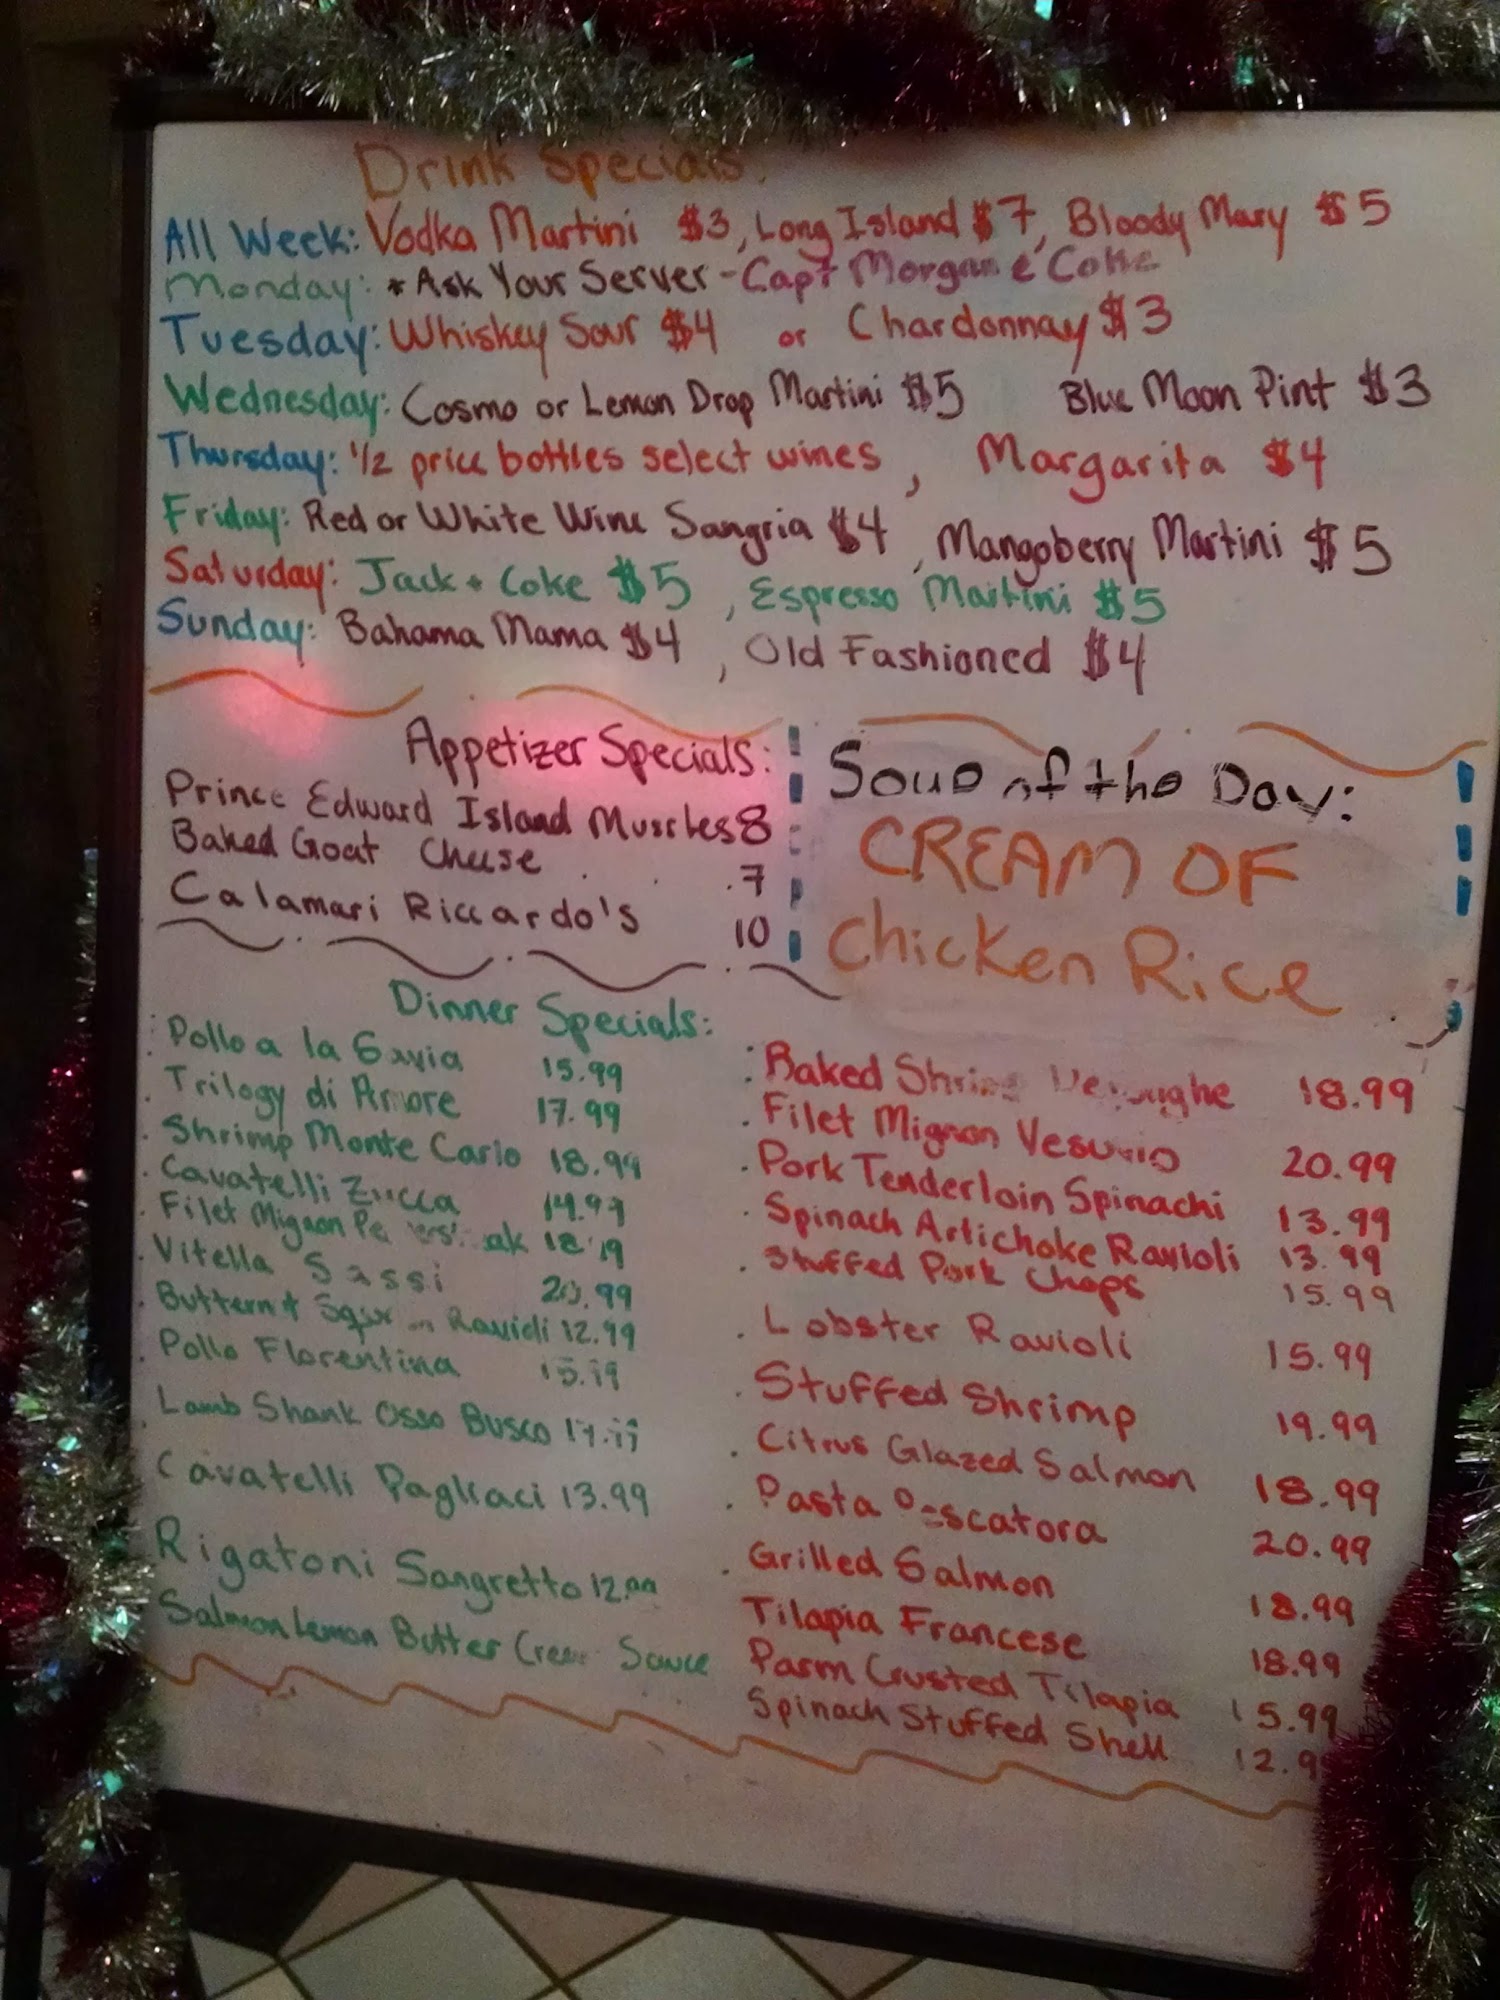 Drink Specials:
All Week: Vodka Martini $3, Long Island $7, Bloody Mary $5
Monday: * Ask Your Server - Capt Morgan & Coke
Tuesday: Whiskey Sour $4 or Chardonnay $3
Wednesday: Cosmo or Lemon Drop Martini $5 Blue Moon Pint $3
Thursday: 1/2 price bottles select wines, Margarita $4
Friday: Red or White Wine Sangria $4, Mangoberry Martini $5
Saturday: Jack + Coke $5, Espresso Martini $5
Sunday: Bahama Mama $4, Old Fashioned $4
Appetizer Specials:
Prince Edward Island Muscles 8
Baked Goat Cheese .7
Calamari Riccardo's 10
Soup of the Day:
CREAM OF
Chicken Rice
Dinner Specials:
Pollo a la 15.99
Trilogy di Amore 17.99
Shrimp Monte Carlo 18.99
Cavatelli Zucca 14.99
Filet Mignon
Vitella Sassi 20.99
Ravioli 12.99
Pollo Florentina
Lamb Shank Osso Busco
Cavatelli Pagliaci 13.99
Rigatoni Sangretto 12.99
Salmon Lemon Butter Sauce
Baked 18.99
Filet Mignon Vesuvio 20.99
Pork Tenderloin Spinachi 13.99
Spinach Artichoke Ravioli 13.99
Stuffed Pork Chops 15.99
Lobster Ravioli 15.99
Stuffed Shrimp 19.99
Citrus Glazed Salmon 18.99
Pasta Pescatora 20.99
Grilled Salmon 18.99
Tilapia Francese 18.99
Parm Crusted Tilapia 15.99
Spinach Stuffed Shell